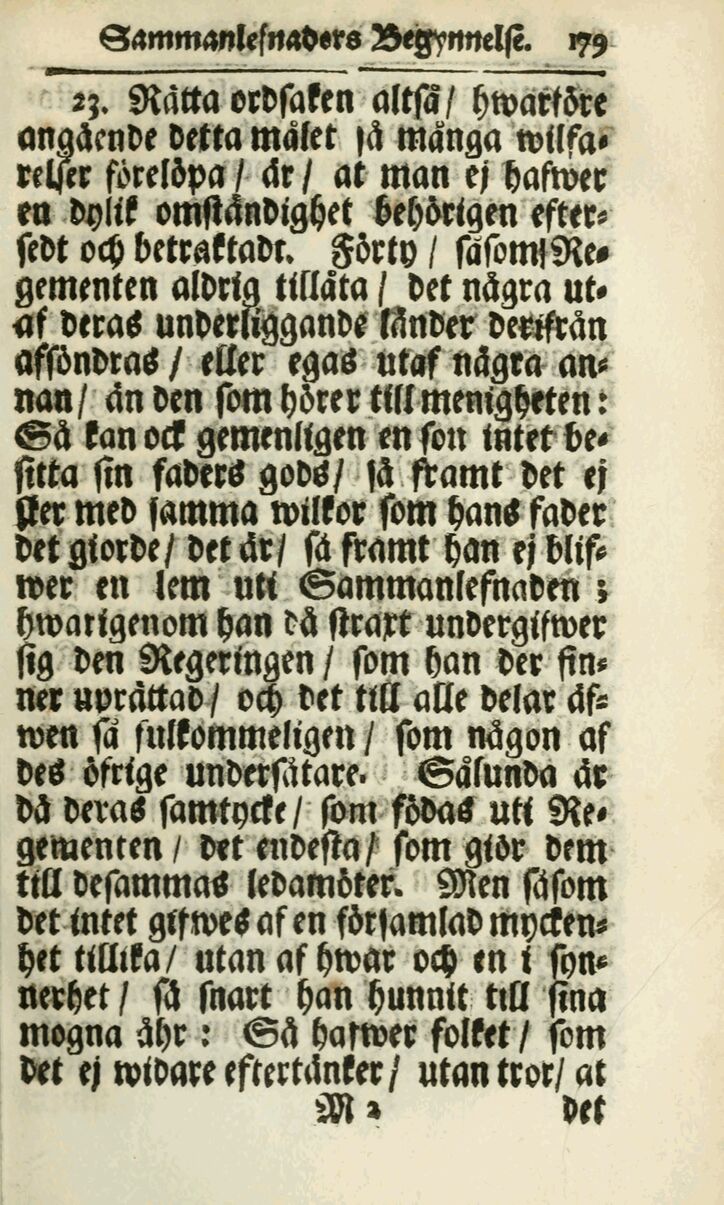 Sammanlefnaders Begynnelse. 179
23. Rätta ordsaken altså / hwarföre
angående detta målet så många wilfa-
relser förelöpa / är / at man ej hafwer
en dylik omständighet behörigen efter-
sedt och betraktadt. Förty / såsom Re-
gementen aldrig tillåta / det några ut-
af deras underliggande länder derifrån
afföndras / eller egas utaf några an-
nan / än den som hörer till menigheten:
Så kan ock gemenligen en son intet be-
sitta sin faders gods / så framt det ej
sker med samma wilkor som hans fader
det giorde / det är / så framt han ej blif-
wer en lem uti Sammanlefnaden ;
hwarigenom han då straxt undergifwer
sig den Regeringen / som han der fin-
ner uprättad / och det till alle delar äf-
wen så fulkommeligen / som någon af
des öfrige undersåtare. Sålunda är
då deras samtycke / som födas uti Re-
gementen / det endesta / som giör dem
till desammas ledamöter. Men såsom
det intet gifwes af en församlad mycken-
het tillika / utan af hwar och en i syn-
nerhet / så snart han hunnit till sina
mogna åhr : Så hafwer folket / som
det ej widare eftertänker / utan tror / at
M 2 det